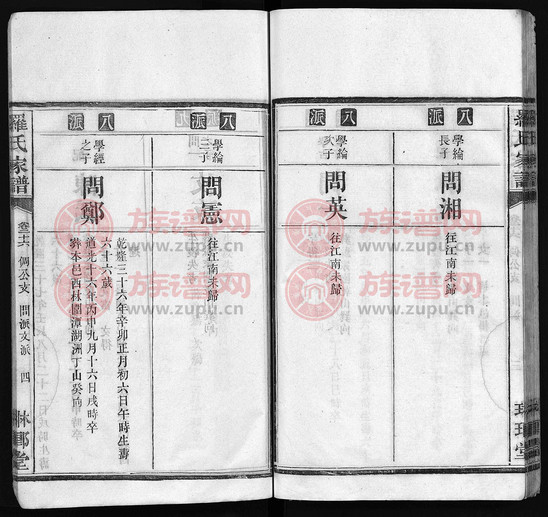 派八
學綸
長子
問湘
往江南未歸
派八
學綸
次子
問英
往江南未歸
派八
學綸
三子
問憲
往江南未歸
派八
學經
之子
問鄭
乾隆三十六年辛卯正月初六日午時生壽
六十六歲
道光十六年丙申九月十六日戌時卒
葬本邑西林圍潭湖洲丁山癸向
羅氏家譜
偶公支 問派文派 四
族谱网
www.zupu.cn